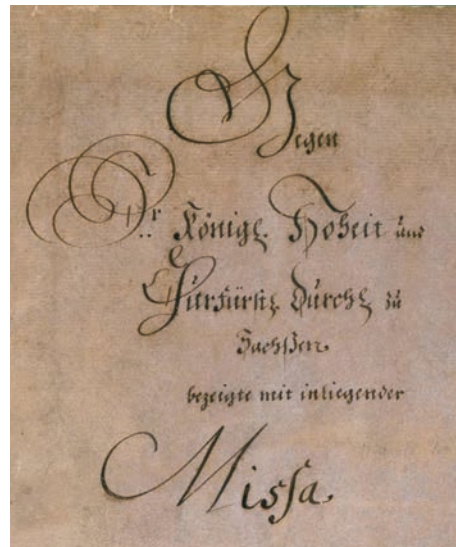 Gegen
Sr Königl. Hoheit und
Churfürstl. Durchl. zu
Sachßen
bezeigte mit inliegender
Missa.